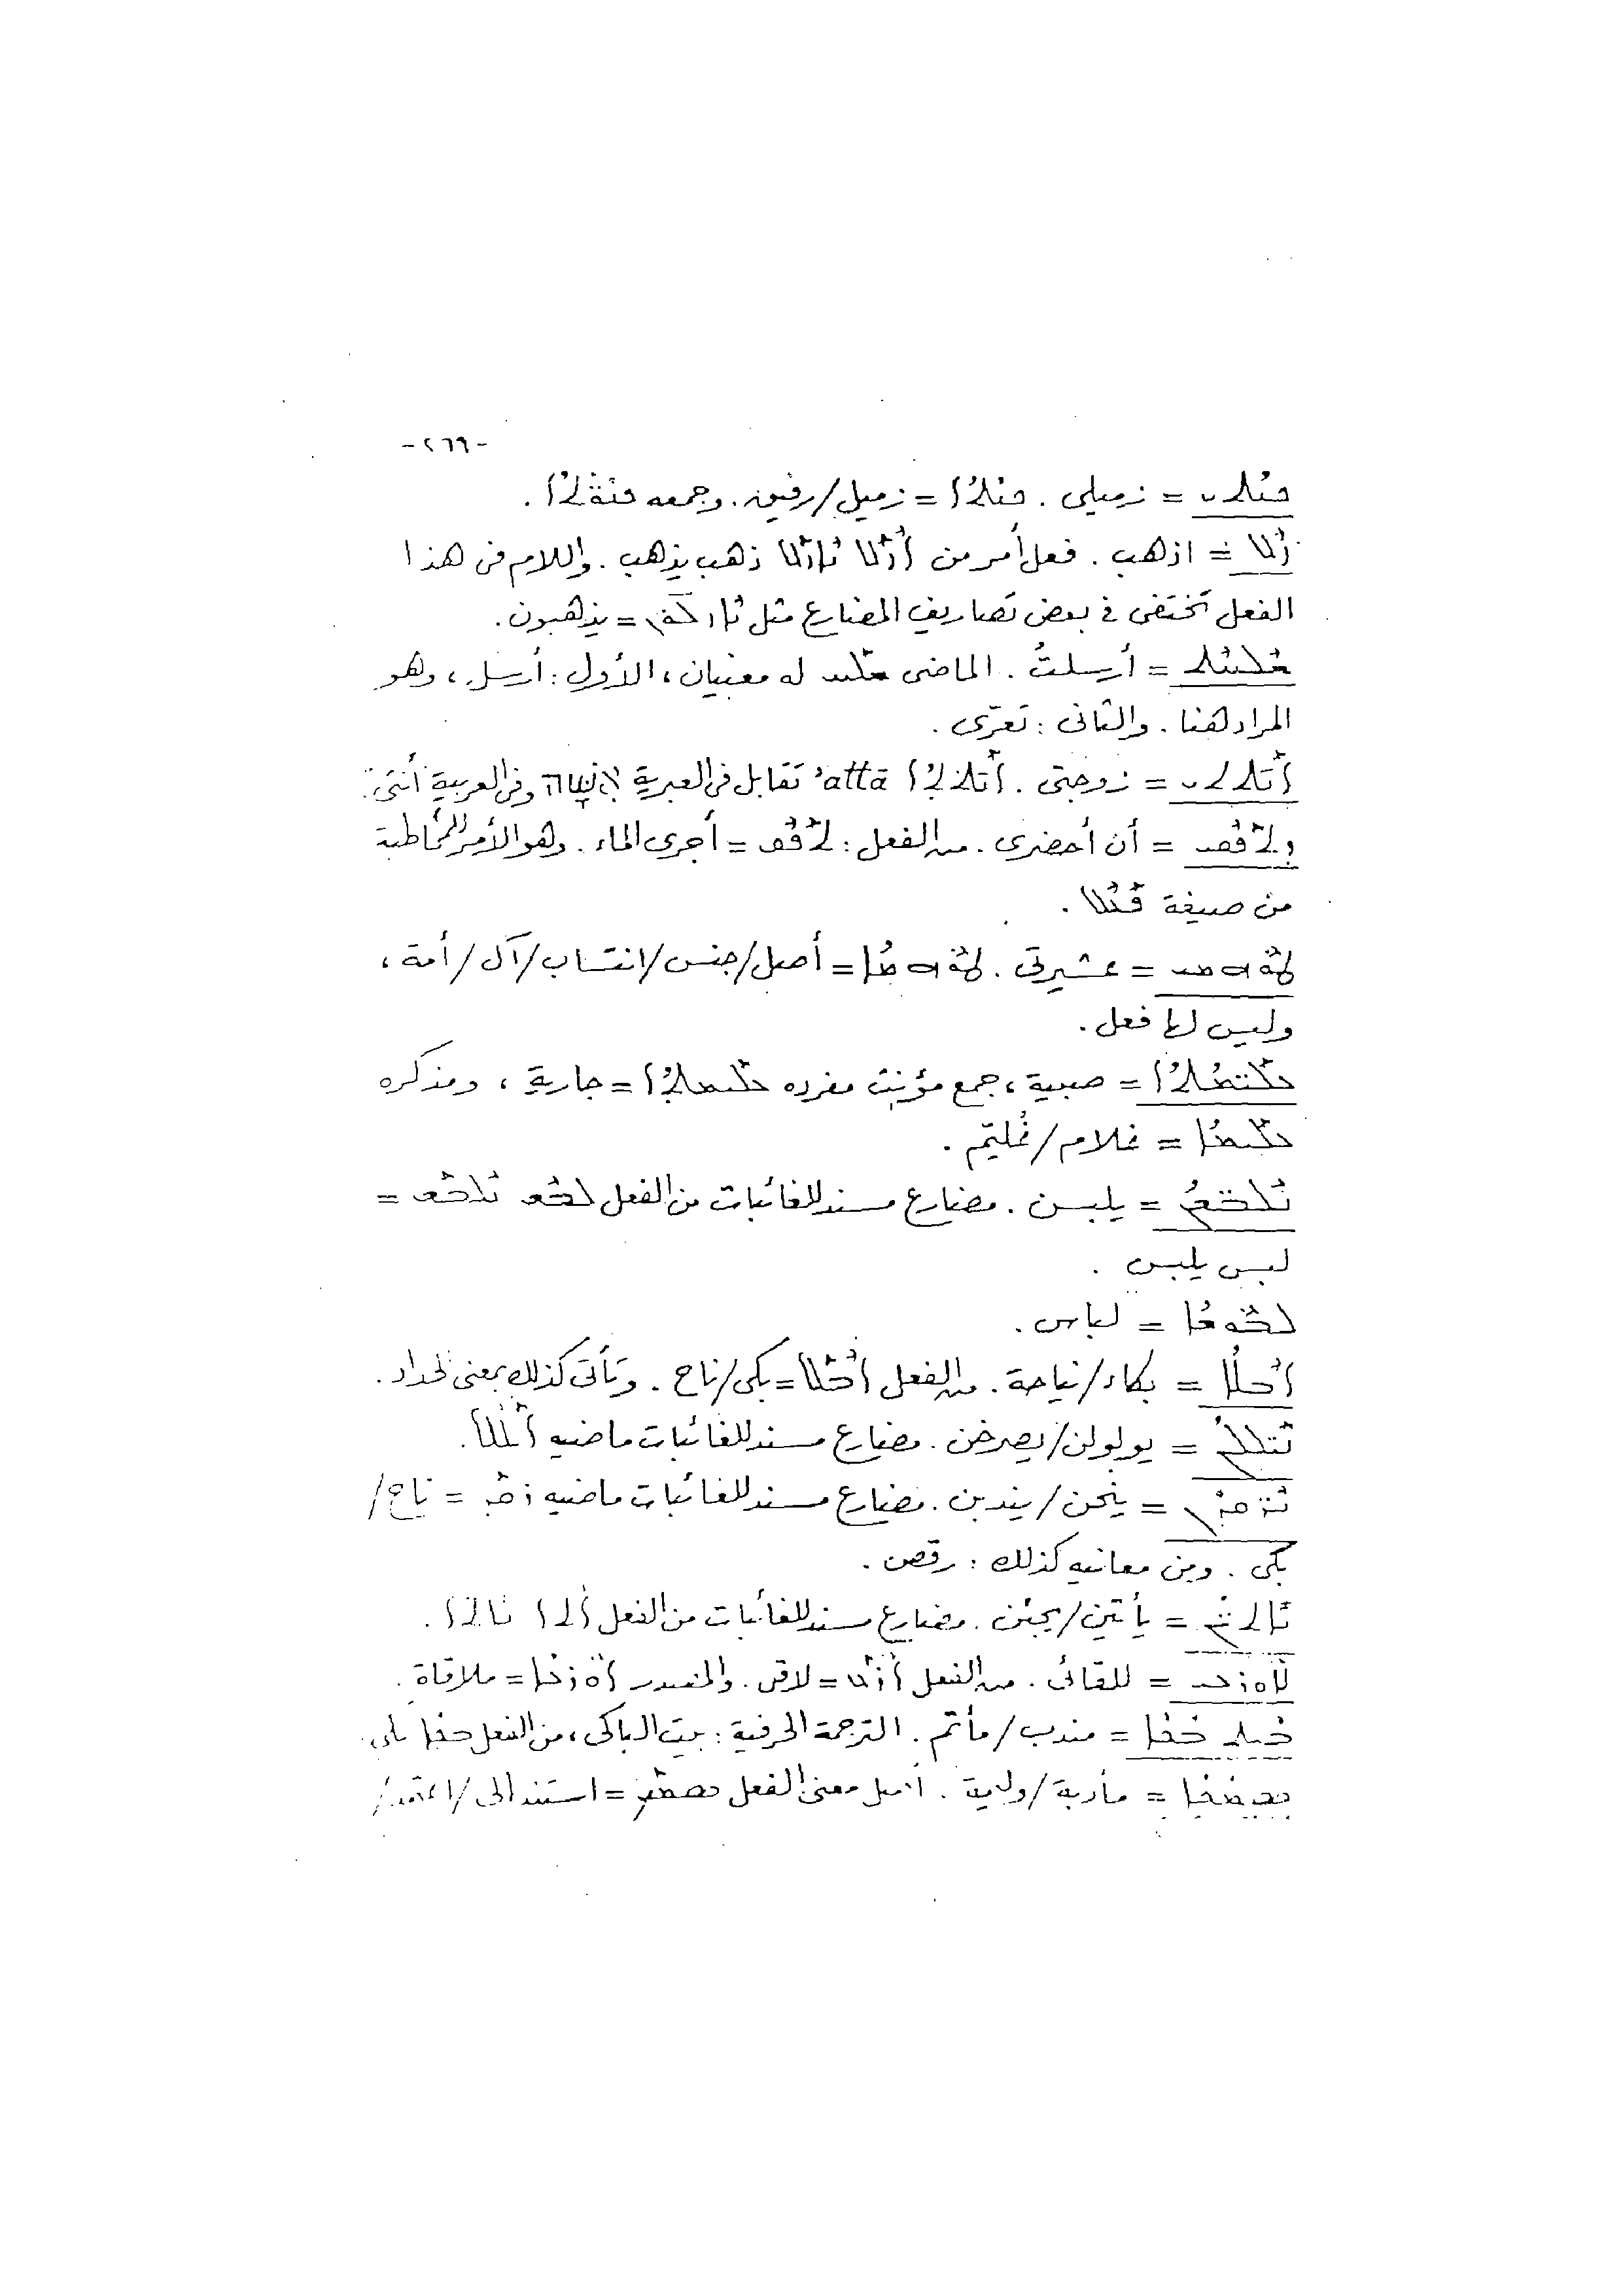 -٢٦٩-
ܟܢܬܝ = زميلى . ܟܢܬܐ = زميل/رفيق. وجمعه ܟܢܘܬܐ .
ܙܠ = اذهب . فعل أمر من ܐܙܠ ܢܐܙܠ ذهب يذهب . واللام فى هذا
الفعل تختفى فى بعض تصاريف المضارع مثل = يذهبون .
ܫܠܚܬ = أرسلتُ . الماضى ܫܠܚ له معنيان ، الأول : أرسل ، وهو
المراد هنا . والثانى : تعرّى .
ܐܢܬܬܝ = زوجتى . ܐܢܬܬܐ ʾattā تقابل فى العبرية אשה وفى العربية أنثى .
= أن أحضرى . من الفعل : = أجرى الماء . وهو الأمر للمخاطبة
من صيغة .
ܛܘܗܡܝ = عشيرتى . ܛܘܗܡܐ = أصل/جنس/انتساب/آل/أمة ،
وليس لها فعل .
ܥܠܝܡܬܐ = صبية ، جمع مؤنث مفرده ܥܠܝܡܬܐ = جارية ، ومذكره
ܥܠܝܡܐ = غلام/غُليّم .
ܢܠܒܫܢ = يلبسن . مضارع مسند للغائبات من الفعل ܠܒܫ ܢܠܒܫ =
لبس يلبس .
ܠܒܘܫܐ = لباس .
ܐܒܠܐ = بكاء/نياحة . من الفعل ܐܒܠ = بكى/ناح . وتأتى كذلك بمعنى الحداد .
ܢܐܠܝܢ = يولولن/يصرخن . مضارع مسند للغائبات ماضيه .
ܢܪܩܕܢ = ينحن/يندبن . مضارع مسند للغائبات ماضيه ܪܩܕ = ناح/
بكى . ومن معانيه كذلك : رقص .
ܢܐܬܝܢ = يأتين/يجئن . مضارع مسند للغائبات من الفعل ܐܬܐ ܢܐܬܐ .
ܠܐܘܪܥܝ = للقائى . من الفعل ܐܪܥ = لاقى . والمصدر ܐܘܪܥܐ = ملاقاة .
ܒܝܬ ܒܟܝܐ = مندب/مأتم . الترجمة الحرفية : بيت الباكى ، من الفعل ܒܟܐ بكى .
ܣܡܟܐ = مأدبة/وليمة . أصل معنى الفعل ܣܡܟ = استند الى/اعتمد/